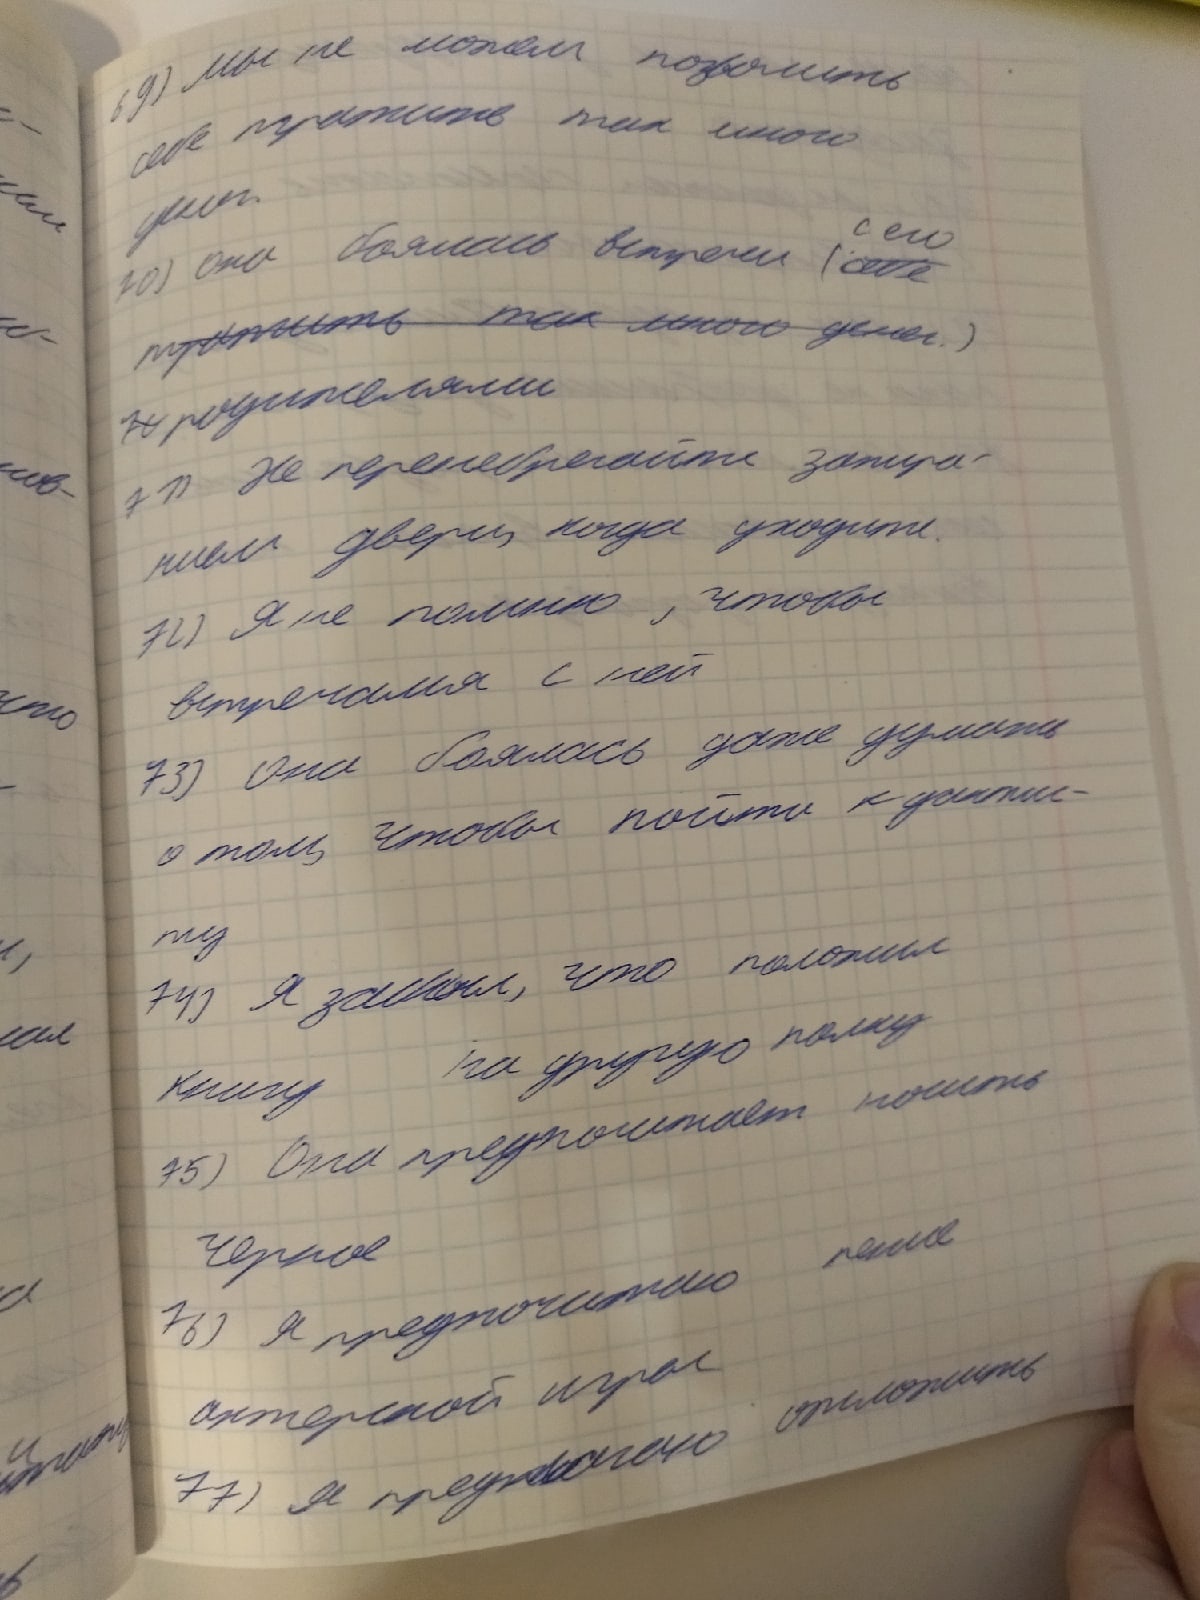 69) Мы не можем позволить
себе тратить так много
денег.
70) Она боялась встречи (себе с его
тратить так много денег.)
родителями
71) Не пренебрегайте запира-
нием двери, когда уходите.
72) Я не помню, чтобы
встречался с ней
73) Она боялась даже думать
о том, чтобы пойти к данти-
ту
74) Я забыл, что положил
книгу на другую полку
75) Она предпочитает носить
черное
76) Я предпочитаю пение
актерской игры
77) Я предлагаю отложить